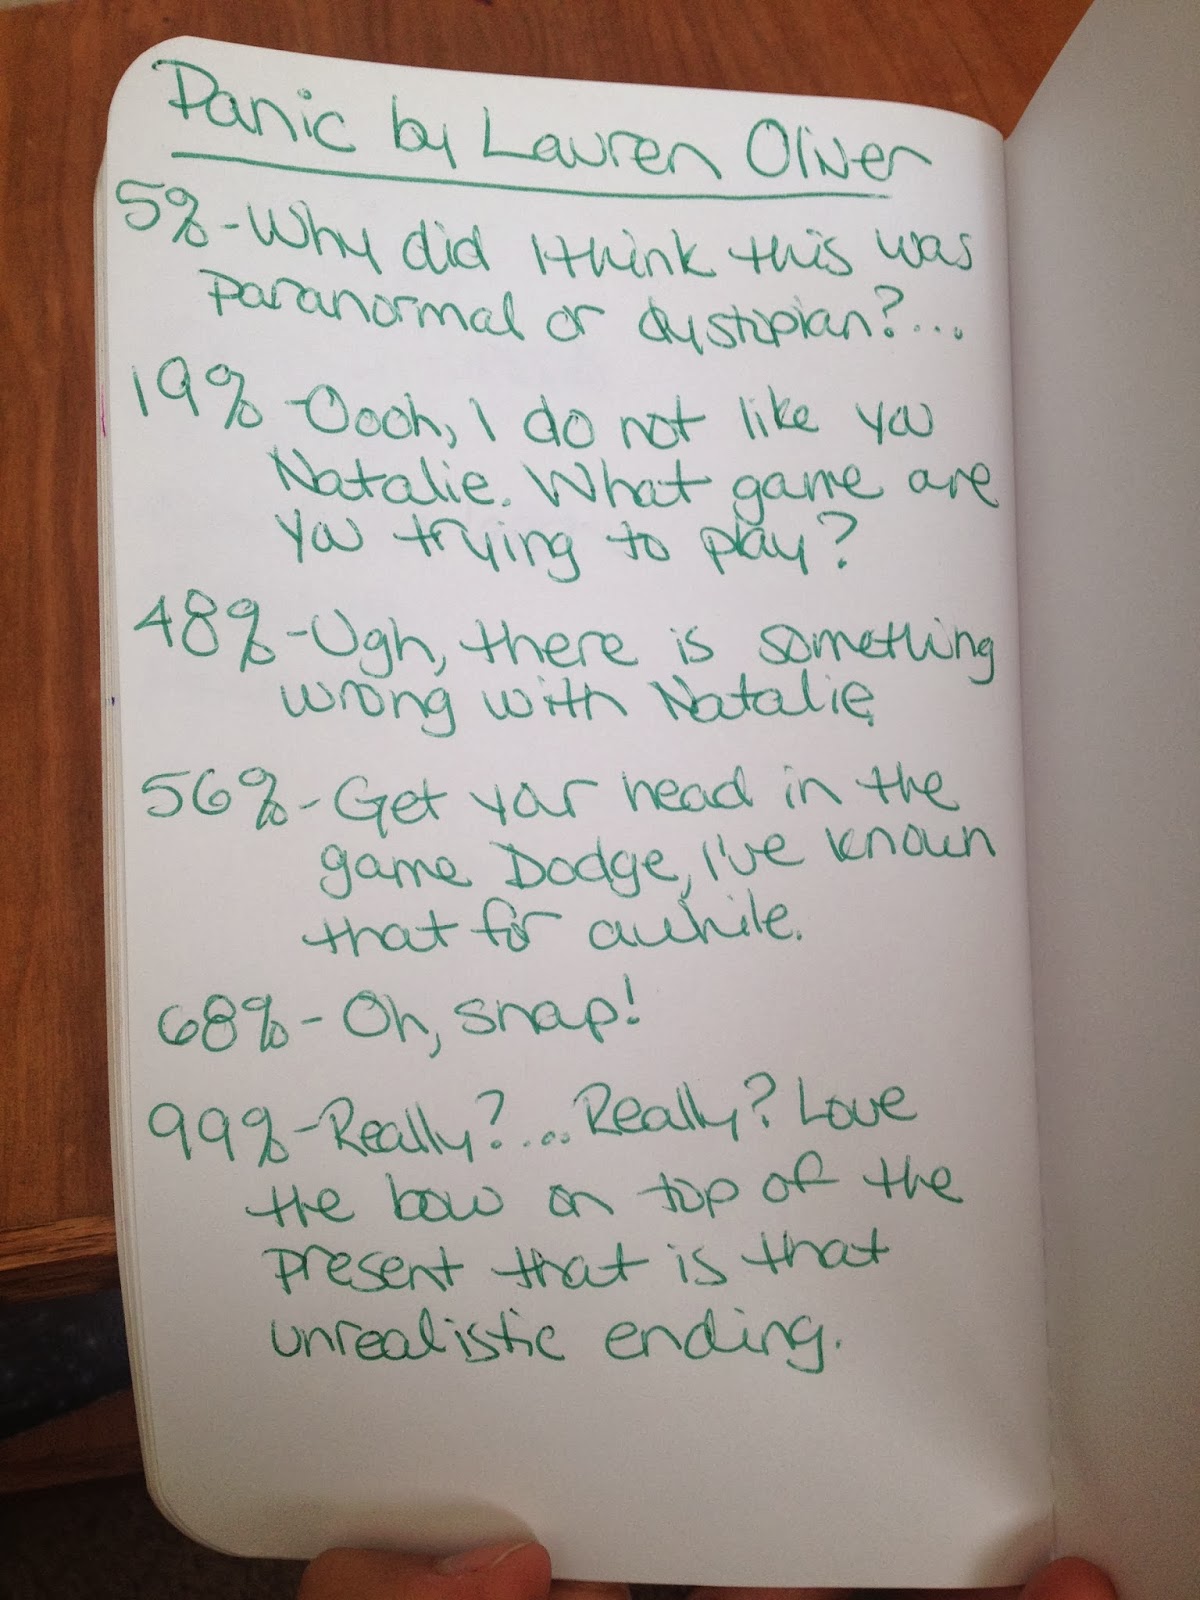 Panic by Lauren Oliver
5%-Why did I think this was
paranormal or dystopian?...
19%-Oooh, I do not like you
Natalie. What game are
you trying to play?
48%-Ugh, there is something
wrong with Natalie.
56%-Get your head in the
game Dodge, I've known
that for awhile.
68%-Oh, snap!
99%-Really?... Really? Love
the bow on top of the
present that is that
unrealistic ending.